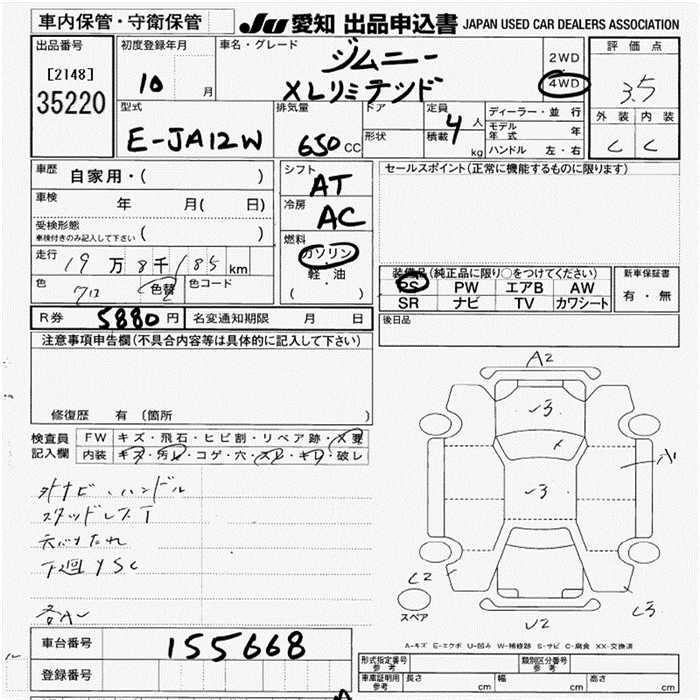 車内保管・守衛保管
JU 愛知 出品申込書 JAPAN USED CAR DEALERS ASSOCIATION
出品番号
[2148]
35220
初度登録年月
10 月
車名・グレード
ジムニー
XLリミテッド
2WD
4WD
評価点
3.5
外装 内装
C C
型式
E-JA12W
排気量
650 CC
ドア
形状
定員
4 人
積載
kg
ディーラー・並行
モデル年式 年
ハンドル 左・右
車歴
自家用・( )
車検
年 月( 日)
受検形態
車検付きのみ記入して下さい ( )
走行
19万8千185 km
色
色替
色コード
シフト
AT
冷房
AC
燃料
ガソリン
・
軽油
( )
セールスポイント(正常に機能するものに限ります)
装備品(純正品に限り○をつけてください)
PS PW エアB AW
SR ナビ TV カワシート
新車保証書
有・無
R券 5880円
名変通知期限 月 日
後日品
注意事項申告欄(不具合内容等は具体的に記入して下さい)
修復歴 有(箇所 )
検査員記入欄
FW キズ・飛石・ヒビ割・リペア跡・X要
内装 キズ・汚レ・コゲ・穴・スレ・キレ・破レ
外ナビ・ハンドル
スタッドレスT
天バリたれ
下廻りSC
A2
-3
-3
A1
C2
スペア
U2
C3
A-キズ E-エクボ U-凹み W-補修跡 S-サビ C-腐食 XX-交換済
車台番号 155668
登録番号
形式指定番号
参考
類別区分番号
参考
車庫証明用
参考
長さ cm
幅 cm
高さ cm